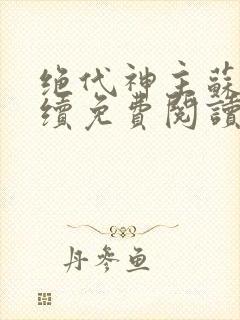 绝代神主蘇
續免費閱讀
丹參魚